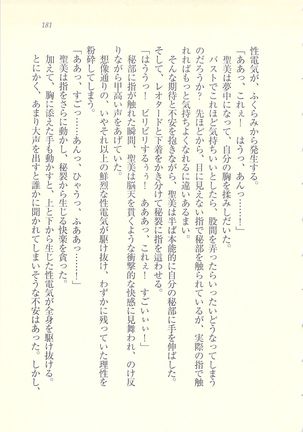 181
性電気が、ふくらみから発生する。
「ああっ、これぇ！　はうっ、あんっ……」
聖美は夢中になって、自分の胸を揉みしだいた。
バストでこれほど気持ちいいとしたら、股間を弄ったらいったいどうなってしまう
のだろうか？　先ほどから、目に見えない指で秘部を触られているが、実際の指で触
れればもっと気持ちよくなれるに違いあるまい。
そんな期待と不安を抱きながら、聖美は半ば本能的に自分の秘部に手を伸ばした。
そして、レオタードと下着をかき分けて秘裂に指を這わせる。
「はううっ！　ビリビリするぅぅ！　あああっ、これぇ！　すごいぃぃ！」
秘部に指が触れた瞬間、聖美は脳天を貫くような衝撃的な快感に見舞われ、のけ反
りながら甲高い声をあげていた。
想像通りの、いやそれ以上の鮮烈な性電気が駆け抜け、わずかに残っていた理性を
粉砕してしまう。
「ああっ、すごっ……あんっ、ひゃうっ、ふああっ………！」
聖美は指をさらに動かし、秘裂から生じる快楽を貪った。
加えて、胸に添えた手も動かすと、上と下から生じた性電気が全身を駆け抜ける。
とにかく、あまり大声を出すと誰かに聞かれてしまいそうな不安はあった。しかし、